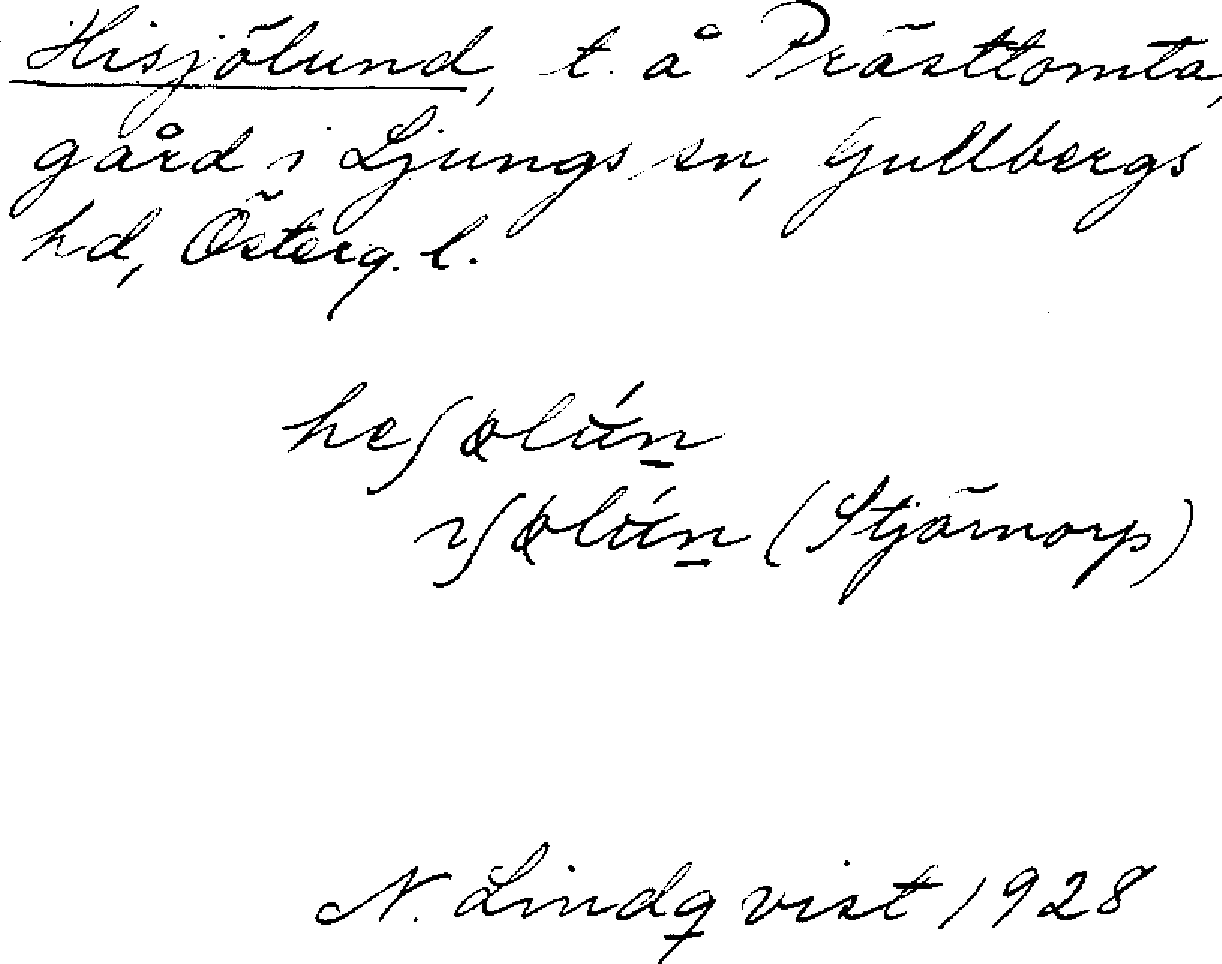 Hisjölund, t. å Prästtomta,
gård i Ljungs sn, Gullbergs
hd, Österg. l.
(Stjärnorp)
N. Lindqvist 1928